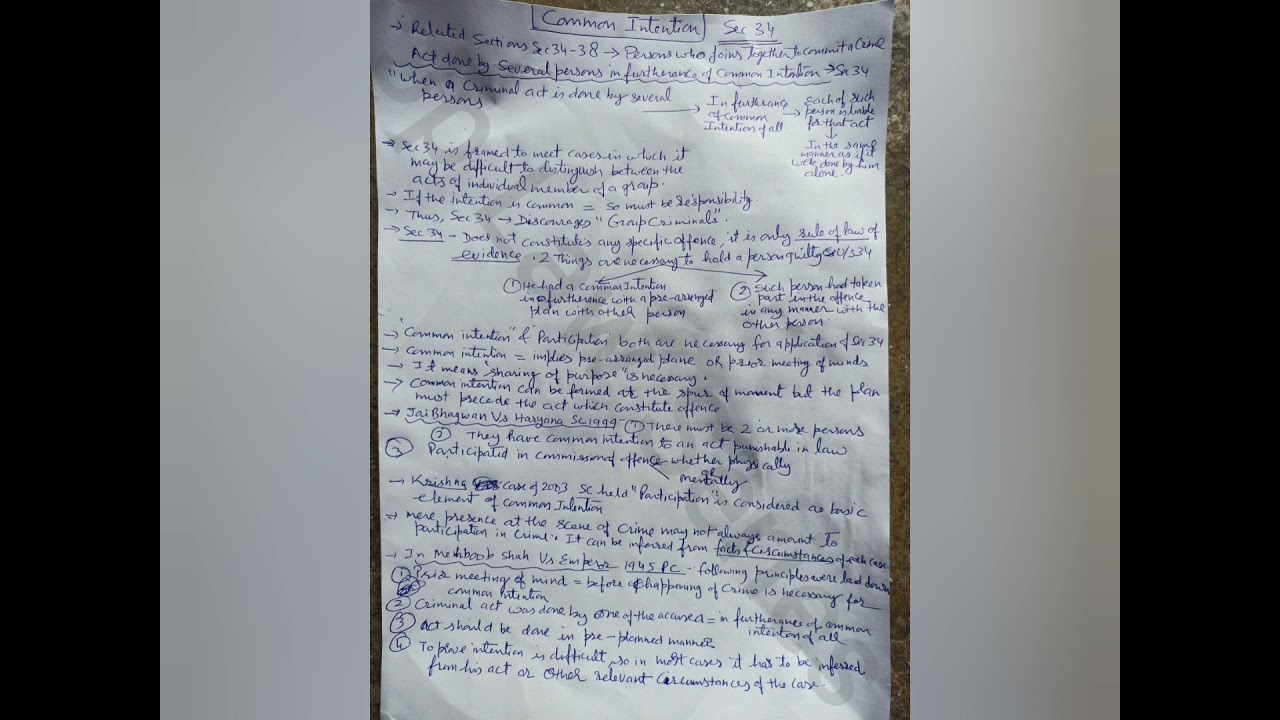 Common Intention Sec 34
→ Related Sections Sec 34-38 → Persons who joins together to commit a Crime
Act done by Several persons in furtherance of Common Intention → Sec 34
"When a Criminal act is done by several persons → In furthrance of common Intention of all → each of such person is liable for that act
↓
In the same manner as if it were done by him alone.
→ Sec 34 is framed to meet cases in which it
may be difficult to distinguish between the
acts of individual member of a group.
→ If the intention is common = so must be responsibility.
→ Thus, Sec 34 → Discourages "Group Criminals".
→ Sec 34 - Does not constitute any specific offence, it is only rule of law of
evidence. 2 Things are necessary to hold a person guilty U/S 34
① He had a common Intention
in furtherence with a pre-arranged
plan with other person
② Such person had taken
part in the offence
in any manner with the
other person.
→ "Common intention" & Participation both are necessary for application of Sec 34
→ Common intention = implies pre-arranged plane or prior meeting of minds
→ It means "sharing of purpose" is necessary.
→ Common intention can be formed at the spur of moment but the plan
must precede the act which constitute offence
→ Jai Bhagwan Vs Haryana SC 1999 ① There must be 2 or more persons
② They have common intention to an act punishable in law
③ Participated in commission of offence whether physically
or
mentally
→ Krishna case of 2003 SC held "Participation" is considered as basic
element of common Intention
→ mere presence at the scene of Crime may not always amount to
participation in Crime. It can be inferred from facts & Circumstances of each case
→ In Mehboob Shah Vs Emperor 1945 PC - following principles were laid down
① Prior meeting of mind = before happening of Crime is necessary for
common intention
② Criminal act was done by one of the accused = in furtherance of common
intention of all
③ act should be done in pre-planned manner
④ To prove intention is difficult, so in most cases it has to be inferred
from his act or other relevant Circumstances of the case.